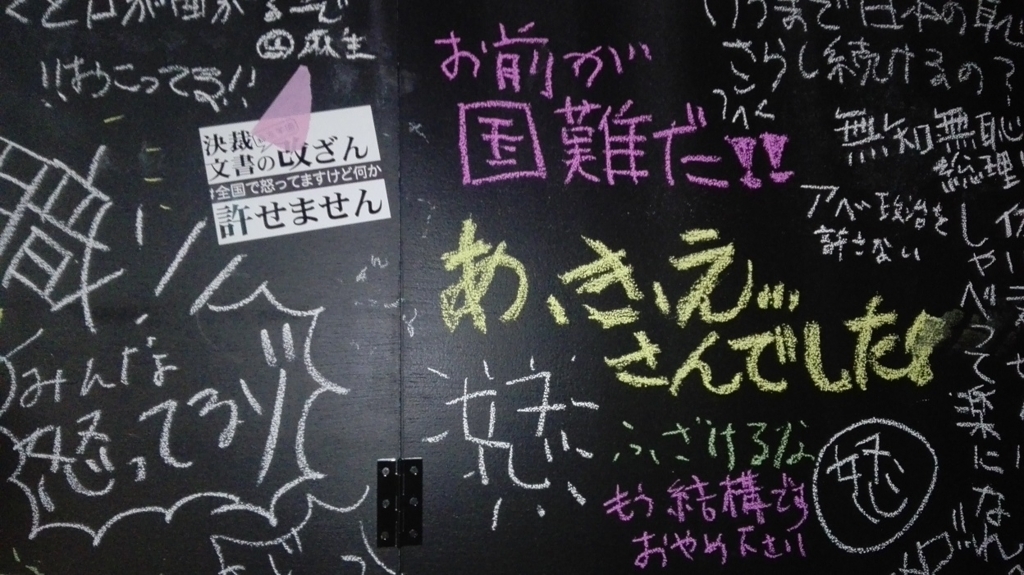 麻生
!!はぁこってる!!
決裁
文書の改ざん
全国で怒ってますけど何か
許せません
みんな
怒ってるゾ
お前が
国難だ!!
いつまで日本の恥
さらし続けるの?
無知無恥
総理
アベ政治を
許さない
あ、きえ…
さんでした!
怒
ふざけるな
もう結構です
おやめ下さい
怒
しゃべって楽になれ